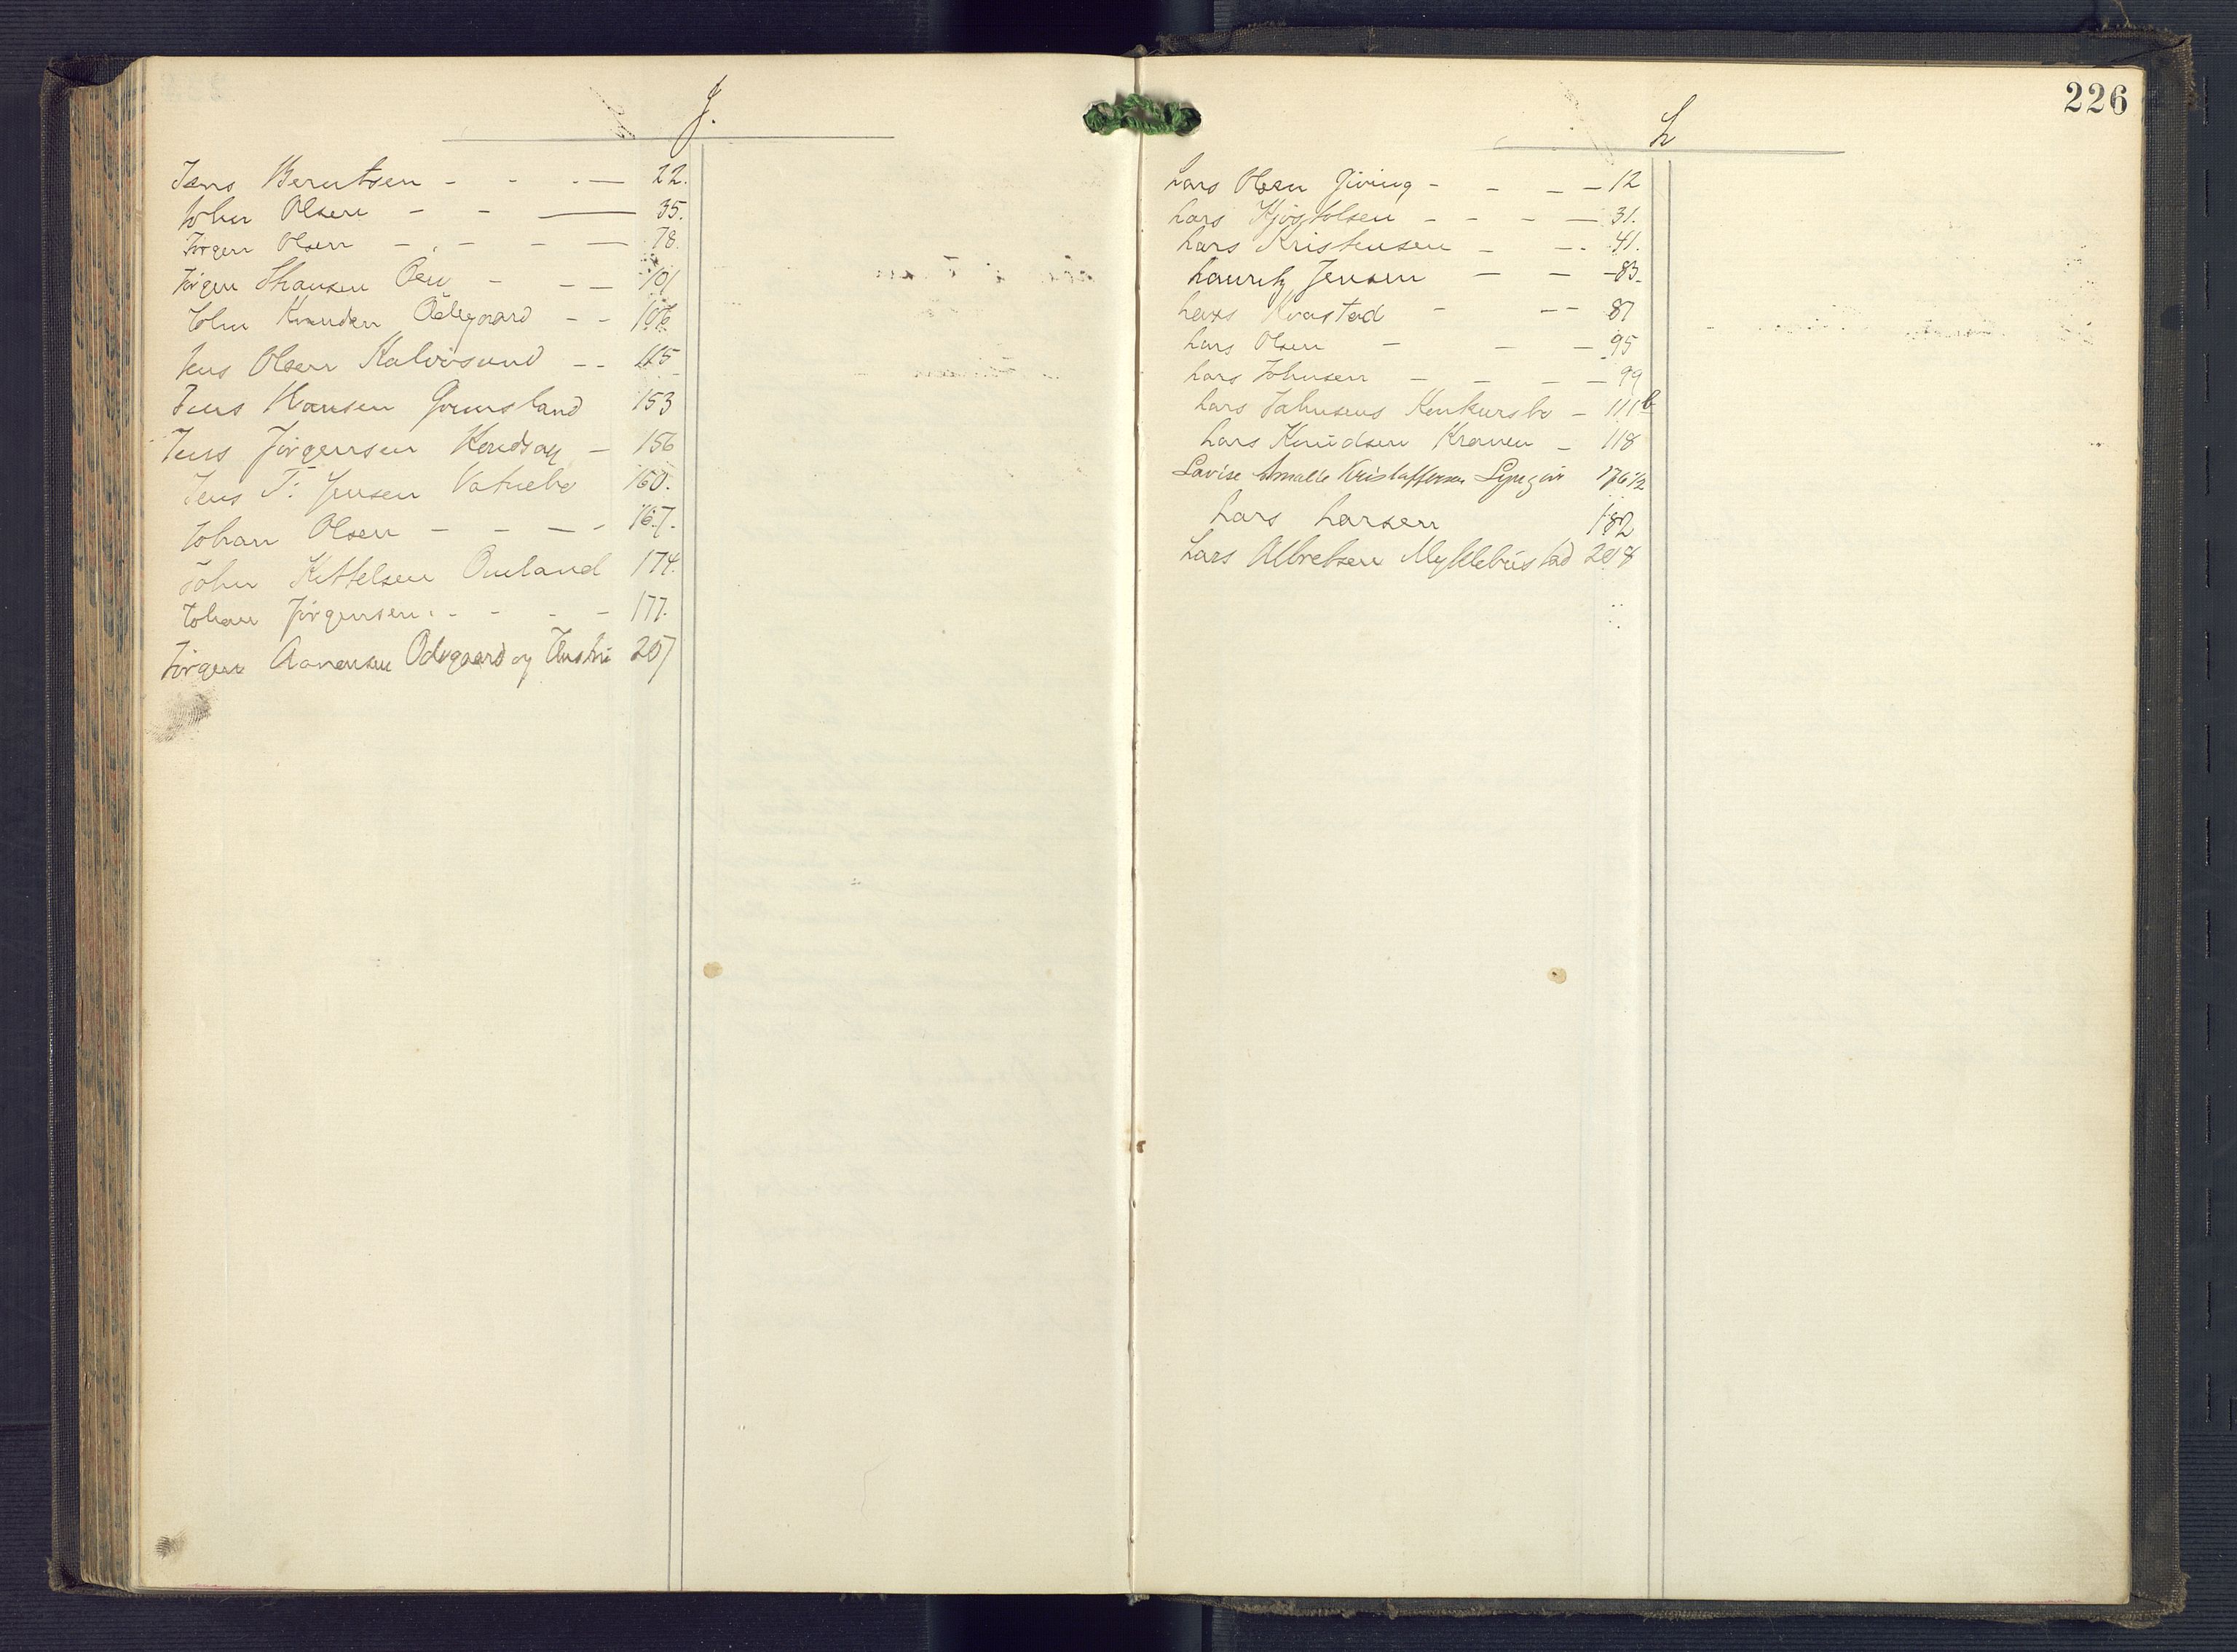 J.
Jens Berntsen - - - — 22.
John Olsen - - — 35.
Jörgen Olsen - - - — 78.
Jörgen Hansen Oen - - — 101
John Knudsen Ödegaard - - 106
Jens Olsen Kalvösund - - 125
Jens Hansen Grimsland 153
Jens Jörgensen - 156
Jens T. Jensen Vatnebo 160.
Johan Olsen - - - - 167.
John Kittelsen Omland 174.
Johan Jörgensen - - - - 177.
Jörgen Aanensen Ödegaard og Hustru 207
226
L
Lars Olsen Jiving - - - - 12
Lars Kjöstolsen - - - — 31.
Lars Kristensen - - - 41.
Lauritz Jensen - - - 83.
Lars Kvastad - - - 87
Lars Olsen - - - 95
Lars Johnsen - - - - 99
Lars Johnsens Konkursbo - 111b
Lars Knudsen Kranen - 118
Lovise Amalie Kristoffersen Lyngör 176 1/2
Lars Larsen 182
Lars Albretsen Myklebústad 208